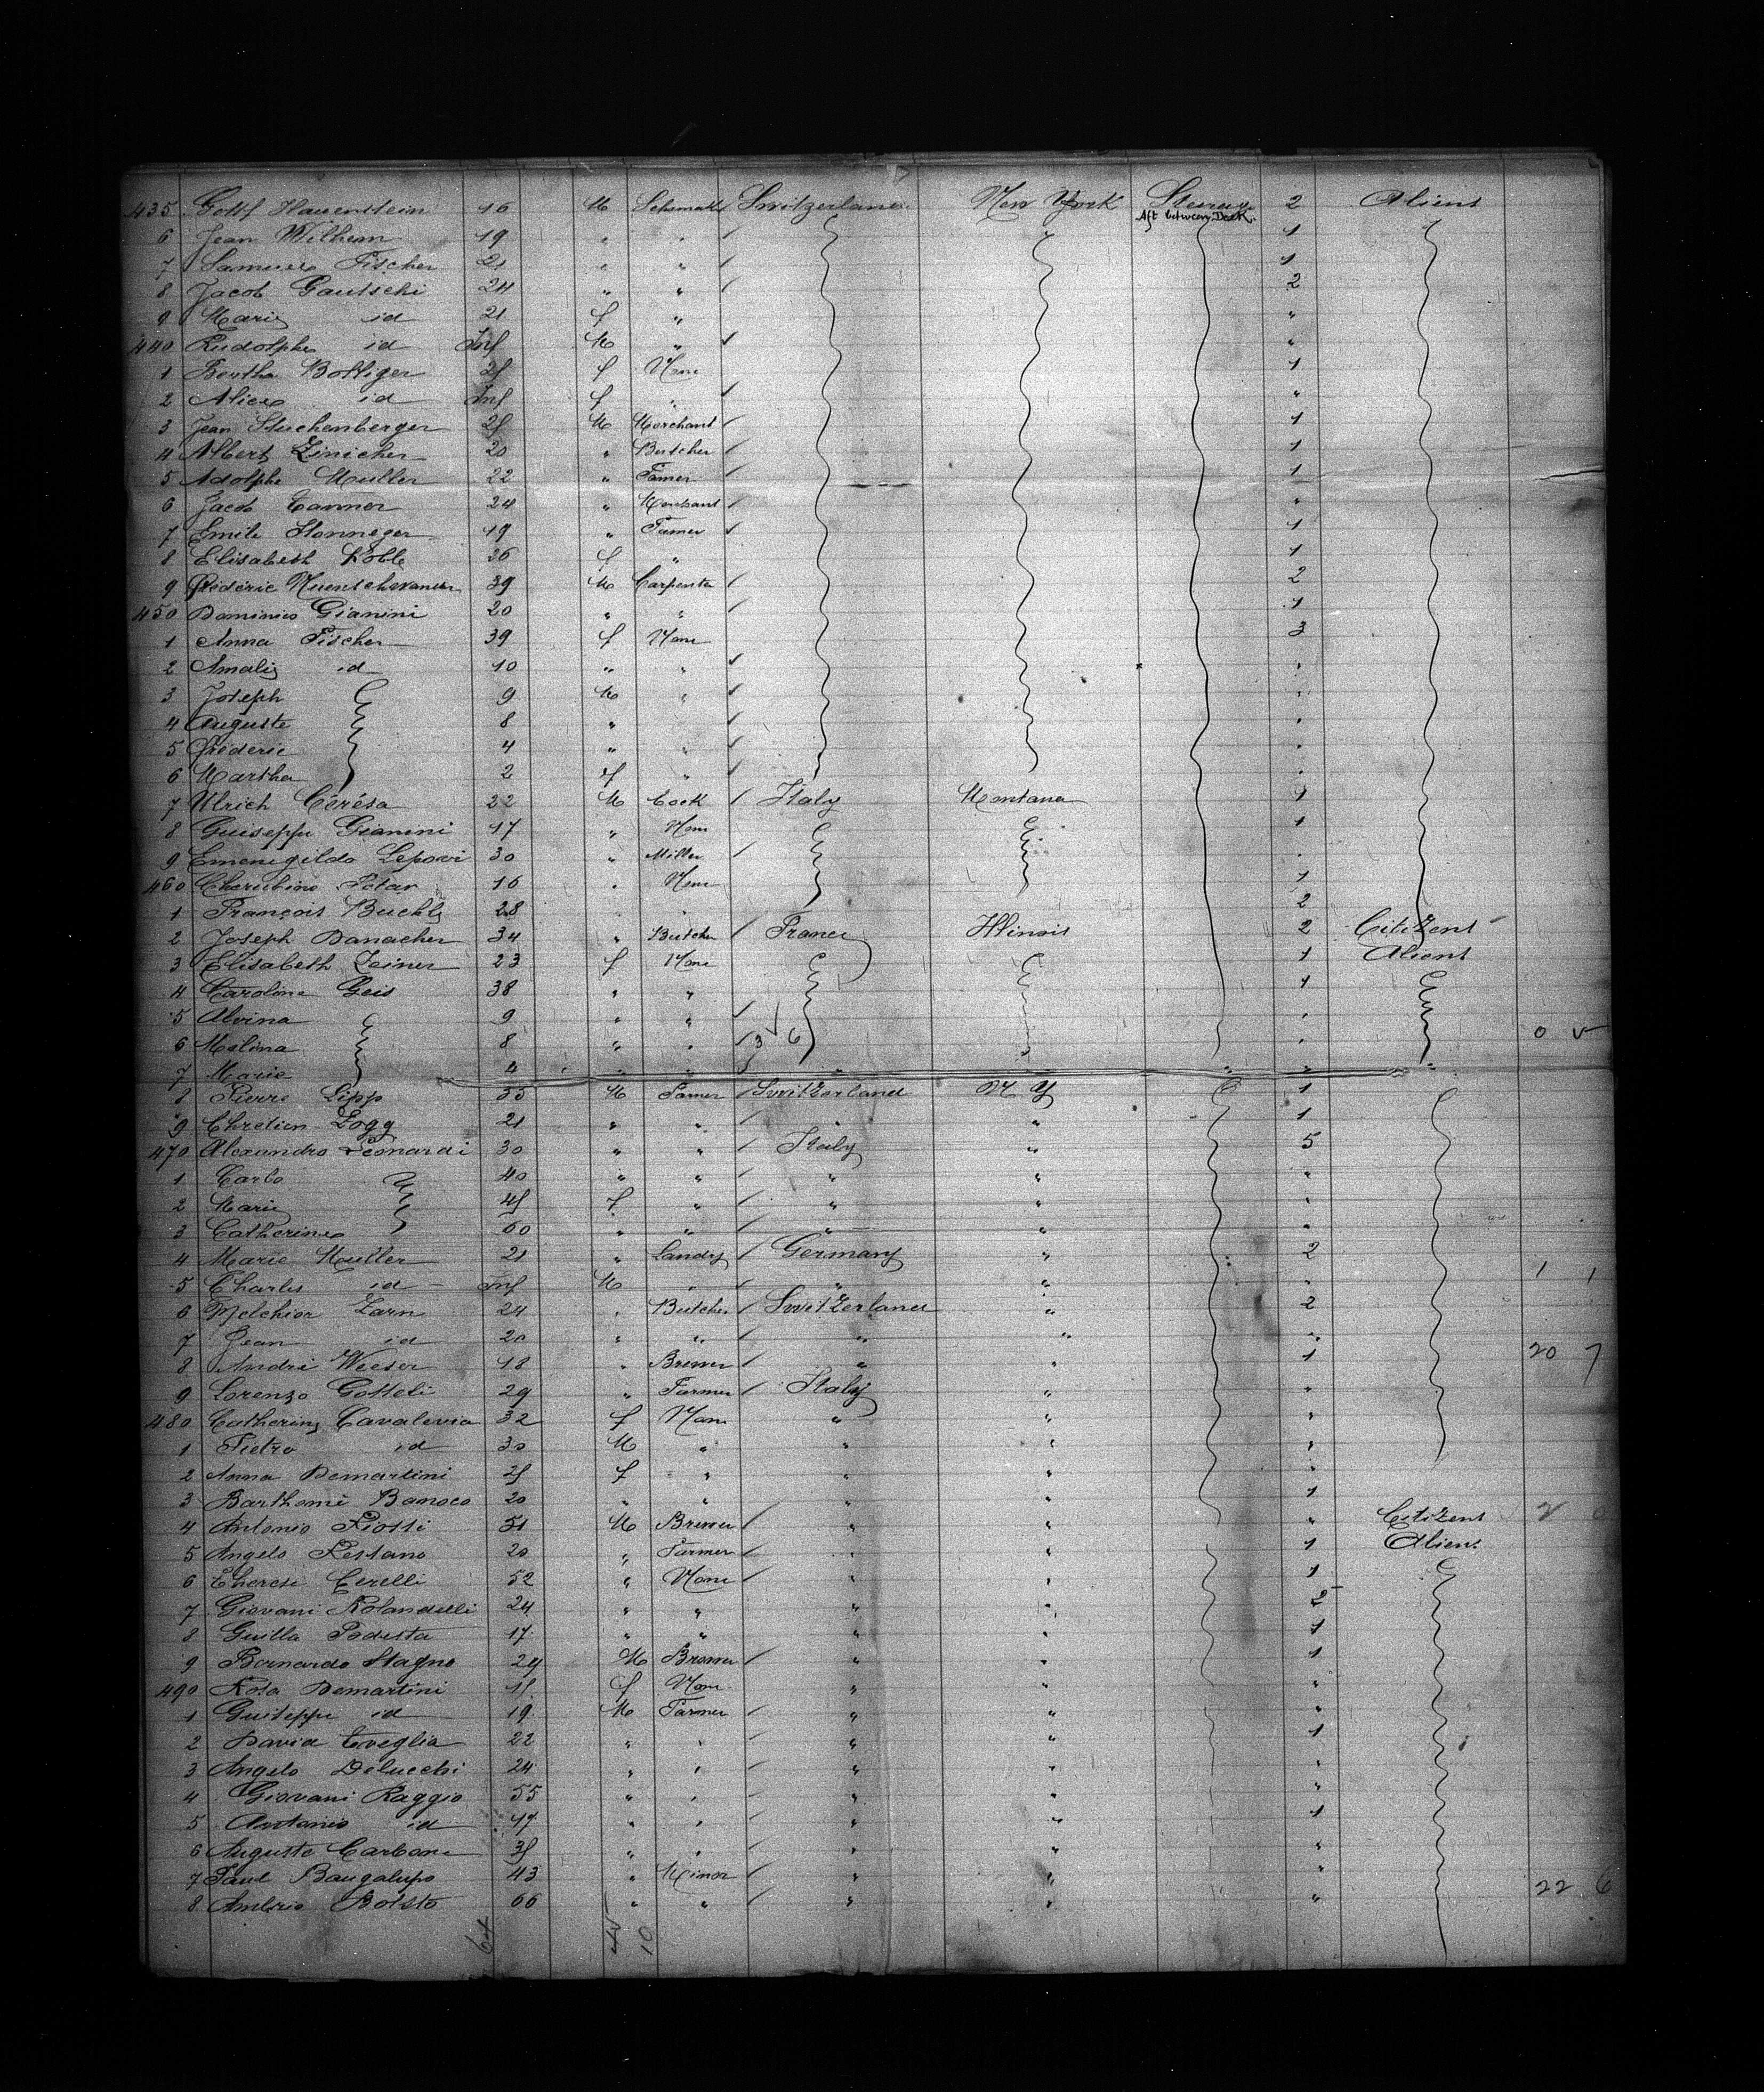 435 Gottf Hauenstein 16 M Schumak Switzerland New York Steerage 2 Aliens
Aft between Deck
6 Jean Wilhem 19 " " 1
7 Samuel Fischer 21 " " 1
8 Jacob Gautschi 24 " " 2
9 Marie id 21 f " "
440 Rudolphe id Inf M " "
1 Bertha Bolliger 25 f None 1
2 Alice id Inf f " "
3 Jean Stuckenberger 25 M Merchant 1
4 Albert Zinicher 20 " Butcher 1
5 Adolphe Muller 22 " Famer 1
6 Jacob Tanner 24 " Merchant "
7 Emile Honneger 19 " Famer 1
8 Elisabeth Koble 26 f " 1
9 Frédéric Nuentchwander 39 M Carpenter 2
450 Dominico Gianini 20 " " 1
1 Anna Fischer 39 f None 3
2 Amalie id 10 " " "
3 Joseph 9 M " "
4 Auguste 8 " " "
5 Frédéric 4 " " "
6 Martha 2 f " "
7 Ulrich Cérésa 22 M Cook Italy Montana 1
8 Guiseppe Gianini 17 " None 1
9 Emenigildo Lepori 30 " Miller "
460 Cherubino Potar 16 " None 1
1 François Buchly 28 " " 2
2 Joseph Danacher 34 " Butcher France Illinois 2 Citizens
3 Elisabeth Zeiner 23 f None 1 Aliens
4 Caroline Geis 38 " " 1
5 Alvina 9 " " "
6 Malina 8 " " 3 6 " 0
7 Marie 4 " " " " " "
8 Pierre Lipp 35 M Famer Switzerland N Y 1
9 Chretien Zogg 21 " " " " 1
470 Alexandro Leonardi 30 " " Italy " 5
1 Carlo 40 " " " " "
2 Marie 45 f " " " "
3 Catherine 60 " " " " "
4 Marie Muller 21 " Landy Germany " 2
5 Charles id Inf M " " " " 1 1
6 Melchior Zarn 24 " Butcher Switzerland " 2
7 Jean id 20 " " " " "
8 André Wieser 18 " Brewer " " 1 20 7
9 Lorenzo Gotteli 29 " Farmer Italy " "
480 Catherine Cavaleria 32 f None " " "
1 Pietro id 30 M " " " "
2 Anna Demartini 25 f " " " "
3 Barthomé Banoco 20 " " " " 1
4 Antonio Piotti 51 M Brewer " " " Citizens 2
5 Angelo Restano 20 " Farmer " " 1 Aliens
6 Therese Cerelli 52 " None " " 1
7 Giovani Rolandelli 24 " " " " 2
8 Guilla Podesta 17 " " " " 1
9 Bernardo Stagno 29 M Brewer " " 1
490 Rosa Demartini 15 f None " " "
1 Guiseppe id 19 M Farmer " " "
2 David Coeglia 22 " " " " 1
3 Angelo Delucchi 24 " " " " "
4 Giovani Raggio 55 " " " " "
5 Antonio id 47 " " " " 1
6 Auguste Carbone 35 " " " " "
7 Paul Baugalupo 43 " Minor " " "
8 Ambrio Botsto 66 " " " " " 22 6
64 10